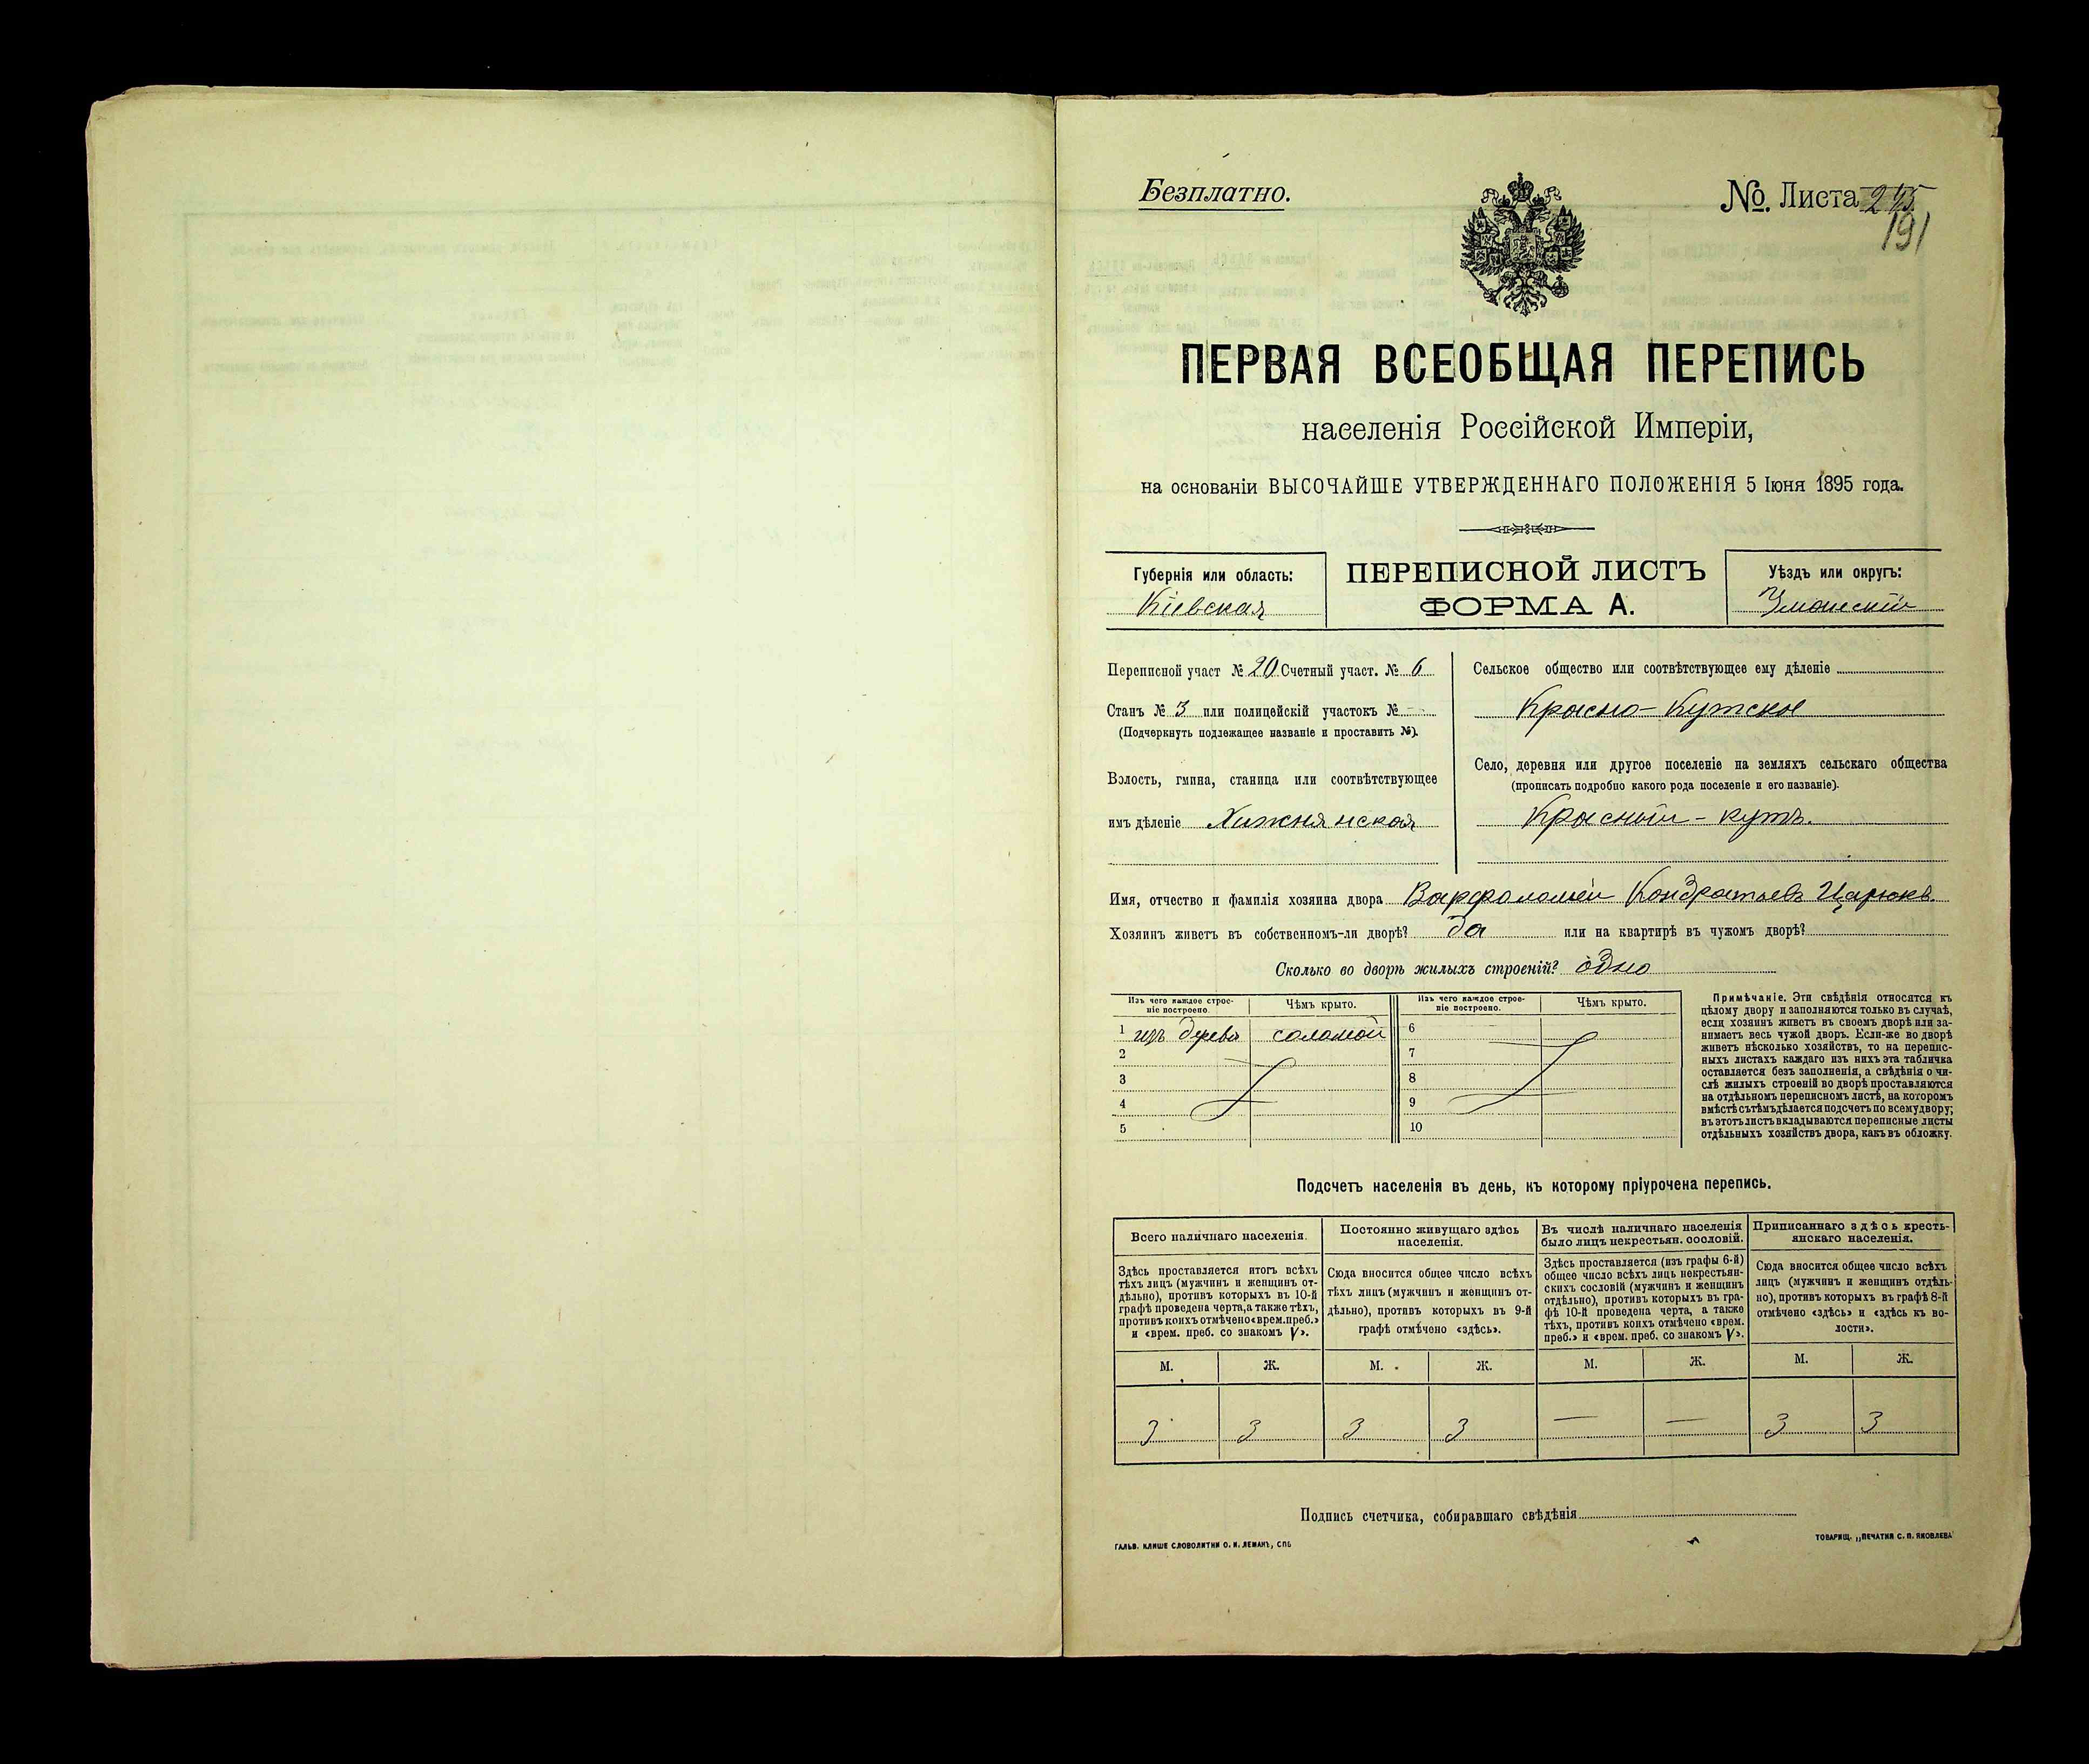 Безплатно.
№ Листа 245
191
ПЕРВАЯ ВСЕОБЩАЯ ПЕРЕПИСЬ
населенія Россійской Имперіи,
на основаніи ВЫСОЧАЙШЕ УТВЕРЖДЕННАГО ПОЛОЖЕНІЯ 5 Іюня 1895 года.
Губернія или область:
Кіевская
ПЕРЕПИСНОЙ ЛИСТЪ
ФОРМА А.
Уѣздъ или округъ:
Уманскій
Переписной участ № 20 Счетный участ. № 6
Станъ № 3 или полицейскій участокъ № -
(Подчеркнуть подлежащее названіе и проставить №).
Волость, гмина, станица или соотвѣтствующее
имъ дѣленіе Хижнянская
Сельское общество или соотвѣтствующее ему дѣленіе
Красно-Кутское
Село, деревня или другое поселеніе на земляхъ сельскаго общества
(прописать подробно какого рода поселеніе и его названіе).
Красный-кутъ.
Имя, отчество и фамилія хозяина двора Варфоломей Кондратьевъ Царюкъ.
Хозяинъ живетъ въ собственномъ-ли дворѣ? да или на квартирѣ въ чужомъ дворѣ?
Сколько во дворѣ жилыхъ строеній? одно
Изъ чего каждое строе-
ніе построено.
Чѣмъ крыто.
Изъ чего каждое строе-
ніе построено.
Чѣмъ крыто.
1 изъ дерева соломой 6
2 7
3 8
4 9
5 10
Примѣчаніе. Эти свѣдѣнія относятся къ
цѣлому двору и заполняются только въ случаѣ,
если хозяинъ живетъ въ своемъ дворѣ или за-
нимаетъ весь чужой дворъ. Если-же во дворѣ
живетъ нѣсколько хозяйствъ, то на перепис-
ныхъ листахъ каждаго изъ нихъ эта табличка
оставляется безъ заполненія, а свѣдѣнія о чи-
слѣ жилыхъ строеній во дворѣ проставляются
на отдѣльномъ переписномъ листѣ, на которомъ
вмѣстѣ съ тѣмъ дѣлается подсчетъ по всему двору;
въ этотъ листъ вкладываются переписные листы
отдѣльныхъ хозяйствъ двора, какъ въ обложку.
Подсчетъ населенія въ день, къ которому пріурочена перепись.
Всего наличнаго населенія.
Здѣсь проставляется итогъ всѣхъ
тѣхъ лицъ (мужчинъ и женщинъ от-
дѣльно), противъ которыхъ въ 10-й
графѣ проведена черта, а также тѣхъ,
противъ коихъ отмѣчено «врем. преб.»
и «врем. преб. со знакомъ V».
Постоянно живущаго здѣсь
населенія.
Сюда вносится общее число всѣхъ
тѣхъ лицъ (мужчинъ и женщинъ от-
дѣльно), противъ которыхъ въ 9-й
графѣ отмѣчено «здѣсь».
Въ числѣ наличнаго населенія
было лицъ некрестьян. сословій.
Здѣсь проставляется (изъ графы 6-й)
общее число всѣхъ лицъ некрестьян-
скихъ сословій (мужчинъ и женщинъ
отдѣльно), противъ которыхъ въ гра-
фѣ 10-й проведена черта, а также
тѣхъ, противъ коихъ отмѣчено «врем.
преб.» и «врем. преб. со знакомъ V».
Приписаннаго здѣсь кресть-
янскаго населенія.
Сюда вносится общее число всѣхъ
лицъ (мужчинъ и женщинъ отдѣль-
но), противъ которыхъ въ графѣ 8-й
отмѣчено «здѣсь» и «здѣсь къ во-
лости».
М. Ж. М. Ж. М. Ж. М. Ж.
3 3 3 3 — — 3 3
Подпись счетчика, собиравшаго свѣдѣнія
ГАЛЬВ. КЛИШЕ СЛОВОЛИТНИ О. И. ЛЕМАНЪ, СПБ
ТОВАРИЩ. „ПЕЧАТНЯ С. П. ЯКОВЛЕВА